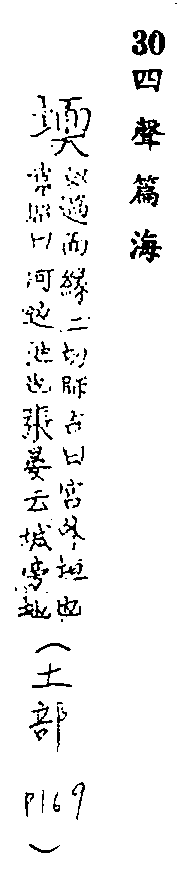 30四聲篇海
堧
奴過而緣二切師古曰宮外垣也
韋昭曰河邊池也張晏云城旁地
（土部 P169）